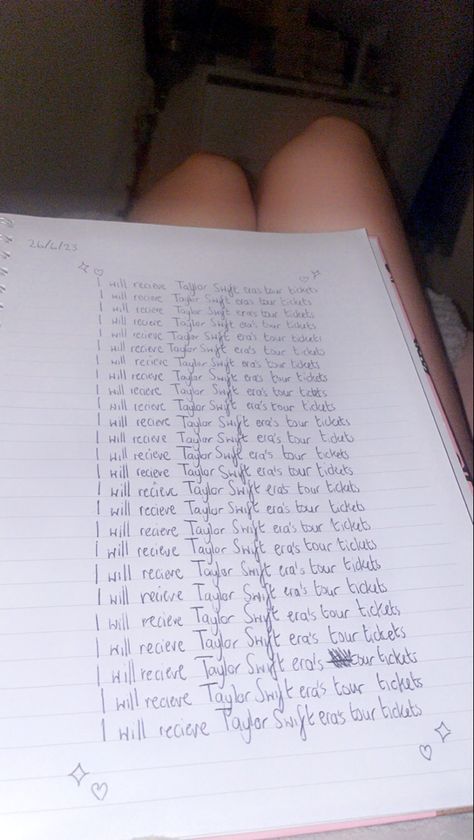 26/6/23
I will recieve Taylor Swift eras tour tickets
I will recieve Taylor Swift eras tour tickets
I will recieve Taylor Swift eras tour tickets
I will recieve Taylor Swift eras tour tickets
I will recieve Taylor Swift era's tour tickets
I will recieve Taylor Swift era's tour tickets
I will recieve Taylor Swift era's tour tickets
I will recieve Taylor Swift era's tour tickets
I will recieve Taylor Swift era's tour tickets
I will recieve Taylor Swift era's tour tickets
I will recieve Taylor Swift era's tour tickets
I will recieve Taylor Swift era's tour tickets
I will recieve Taylor Swift era's tour tickets
I will recieve Taylor Swift era's tour tickets
I will recieve Taylor Swift era's tour tickets
I will recieve Taylor Swift era's tour tickets
I will recieve Taylor Swift era's tour tickets
I will recieve Taylor Swift era's tour tickets
I will recieve Taylor Swift era's tour tickets
I will recieve Taylor Swift era's tour tickets
I will recieve Taylor Swift era's tour tickets
I will recieve Taylor Swift era's tour tickets
I will recieve Taylor Swift era's tour tickets
I will recieve Taylor Swift era's tour tickets
I will recieve Taylor Swift era's tour tickets